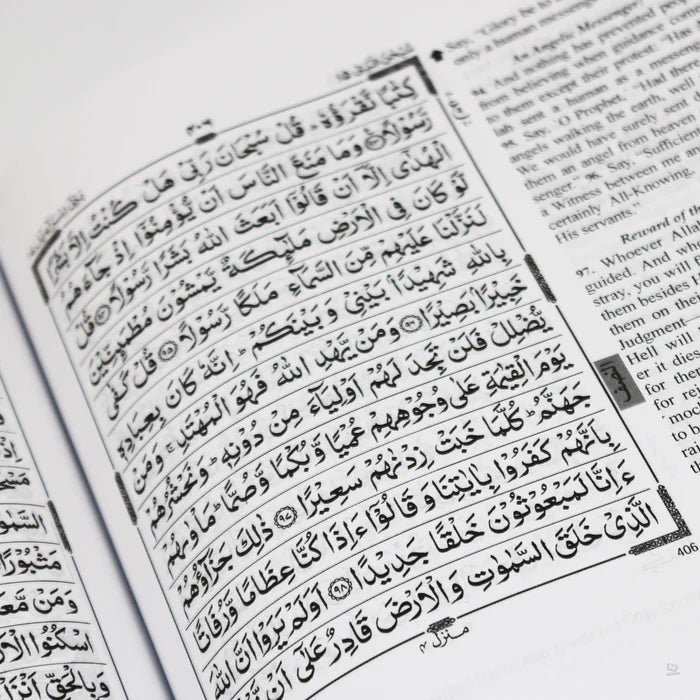 ٤٠٦
كِتٰبًا نَّقْرَؤُهٗ ؕ قُلْ سُبْحَانَ رَبِّيْ هَلْ كُنْتُ اِلَّا بَشَرًا
رَّسُوْلًا ﴿٩٣﴾ وَمَا مَنَعَ النَّاسَ اَنْ يُّؤْمِنُوْۤا اِذْ جَآءَهُمُ
الْهُدٰۤى اِلَّاۤ اَنْ قَالُوْۤا اَبَعَثَ اللّٰهُ بَشَرًا رَّسُوْلًا ﴿٩٤﴾ قُلْ
لَّوْ كَانَ فِى الْاَرْضِ مَلٰٓئِكَةٌ يَّمْشُوْنَ مُطْمَئِنِّيْنَ
لَنَزَّلْنَا عَلَيْهِمْ مِّنَ السَّمَآءِ مَلَكًا رَّسُوْلًا ﴿٩٥﴾ قُلْ كَفٰى
بِاللّٰهِ شَهِيْدًۢا بَيْنِيْ وَبَيْنَكُمْ ؕ اِنَّهٗ كَانَ بِعِبَادِهٖ
خَبِيْرًۢا بَصِيْرًا ﴿٩٦﴾ وَمَنْ يَّهْدِ اللّٰهُ فَهُوَ الْمُهْتَدِ ۚ وَمَنْ
يُّضْلِلْ فَلَنْ تَجِدَ لَهُمْ اَوْلِيَآءَ مِنْ دُوْنِهٖ ؕ وَنَحْشُرُهُمْ
يَوْمَ الْقِيٰمَةِ عَلٰى وُجُوْهِهِمْ عُمْيًا وَّبُكْمًا وَّصُمًّا ؕ مَاْوٰىهُمْ
جَهَنَّمُ ؕ كُلَّمَا خَبَتْ زِدْنٰهُمْ سَعِيْرًا ﴿٩٧﴾ ذٰلِكَ جَزَآؤُهُمْ
بِاَنَّهُمْ كَفَرُوْا بِاٰيٰتِنَا وَقَالُوْۤا ءَاِذَا كُنَّا عِظَامًا وَّرُفَاتًا
ءَاِنَّا لَمَبْعُوْثُوْنَ خَلْقًا جَدِيْدًا ﴿٩٨﴾ اَوَلَمْ يَرَوْا اَنَّ اللّٰهَ
الَّذِيْ خَلَقَ السَّمٰوٰتِ وَالْاَرْضَ قَادِرٌ عَلٰۤى اَنْ
منزل ٤
Say, "Glory be to
only a human messenger
An Angelic Messenger?
94. And nothing has prevented people
from believing when guidance come
to them except their protest: "Has
lah sent a human as a messenger
95. Say, O Prophet, "Had there
angels walking the earth, well
We would have surely sent
them an angel from heaven
senger." 96. Say, "Sufficient
a Witness between me and
certainly All-Knowing,
His servants."
Reward of the
97. Whoever Allah
guided. And
stray, you will
them besides
them on the
Judgment
Hell will
er it dies
for the
for re
to b
النصف
406
مَسْجُ
السَّمٰو
مَثْبُوْرًا
وَمَنْ مَّعَ
اسْكُنُوا الْاَرْ
وَبِالْحَقِّ اَنْزَ